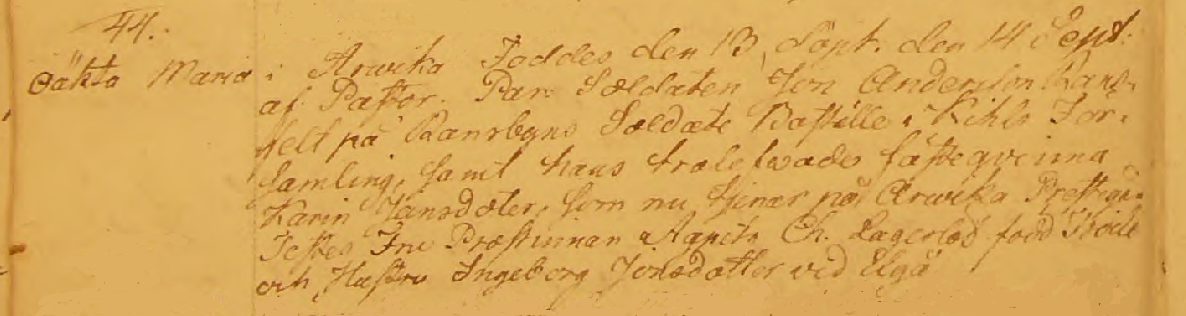 44.
Oäkta Maria i Arwika Foddes den 13 Sept. den 14 Sept.
af Pastor. Par: Soldaten Jon Anderson Rans-
felt på Ransbyns Soldate Bostille i Kihls For-
samling, samt hans trolofwade fästeqvinna
Karin Jansdoter, som nu tjenar på Arwika Prestgå-
Testes Fru Prostinnan Ch. Lagerlöf född
och Hustru Ingeborg Jonsdotter vid Elgå